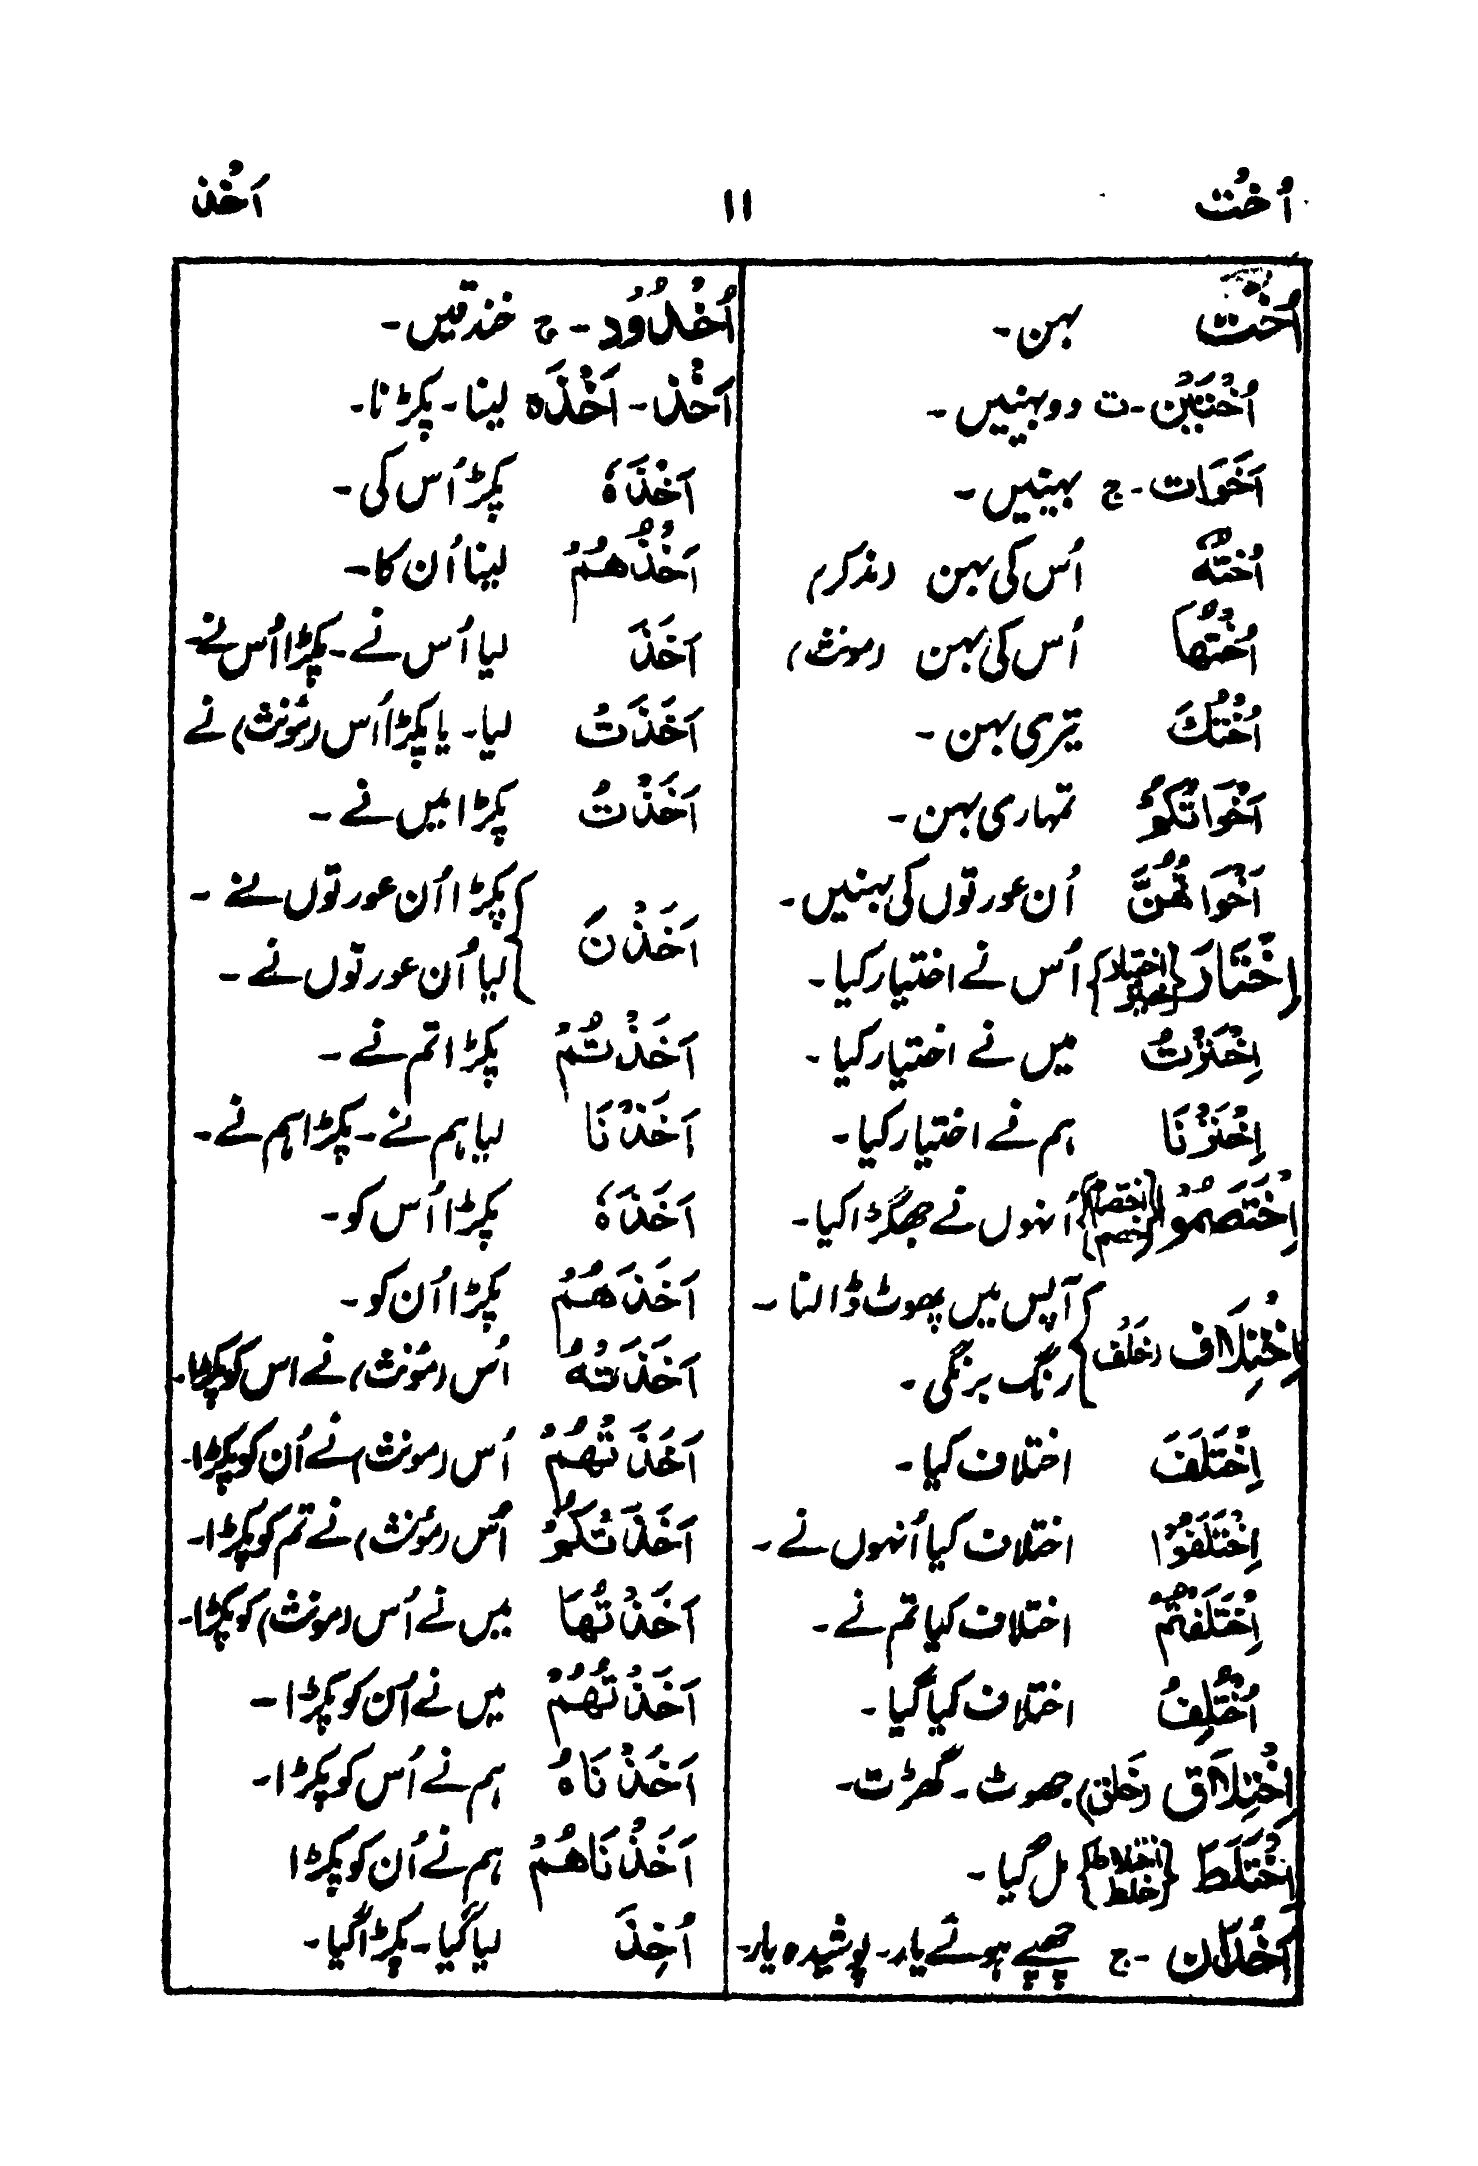 اُخُت ۱۱ اَخُذ
اُخْت بہن۔
اُخْتَیْن۔ت دو بہنیں۔
اَخَوَات۔ج بہنیں۔
اُخْتُہٗ اُس کی بہن (مذکر)
اُخْتُهَا اُس کی بہن (مونث)
اُخْتُكَ تیری بہن۔
اَخْوَاتُكُمْ تمہاری بہن۔
اَخْوَاتُهُنَّ اُن عورتوں کی بہنیں۔
اِخْتَارَ {اختیار خیر} اُس نے اختیار کیا۔
اِخْتَرْتُ میں نے اختیار کیا۔
اِخْتَرْنَا ہم نے اختیار کیا۔
اِخْتَصَمُوْا {اختصام خصم} اُنہوں نے جھگڑا کیا۔
اِخْتِلَاف (خَلف) {آپس میں پھوٹ ڈالنا۔
رنگ برنگی۔
اِخْتَلَفَ اختلاف کیا۔
اِخْتَلَفُوْا اختلاف کیا اُنہوں نے۔
اِخْتَلَفْتُمْ اختلاف کیا تم نے۔
اُخْتُلِفُ اختلاف کیا گیا۔
اِخْتِلَاق (خَلق) جھوٹ۔گھڑت۔
اِخْتَلَطَ {اختلاط خلط} مل گیا۔
اَخْدَان۔ج چھپے ہوئے یار۔پوشیدہ یار۔
اُخْدُوْد۔ج خندقیں۔
اَخْذ۔اَخْذَہ لینا۔پکڑنا۔
اَخْذَہٗ پکڑ اُس کی۔
اَخْذُهُمْ لینا اُن کا۔
اَخَذَ لیا اُس نے۔پکڑا اُس نے۔
اَخَذَتُ لیا۔یا پکڑا اُس (مؤنث) نے
اَخَذْتُ پکڑا میں نے۔
اَخَذْنَ {پکڑا اُن عورتوں نے۔
لیا اُن عورتوں نے۔
اَخَذْتُمْ پکڑا تم نے۔
اَخَذْنَا لیا ہم نے۔پکڑا ہم نے۔
اَخَذَہٗ پکڑا اُس کو۔
اَخَذَهُمْ پکڑا اُن کو۔
اَخَذَتْهُ اُس (مؤنث) نے اس کو پکڑا۔
اَخَذَتْهُمْ اُس (مونث) نے اُن کو پکڑا۔
اَخَذَتْكُمْ اُس (مؤنث) نے تم کو پکڑا۔
اَخَذْتُهَا میں نے اُس (مونث) کو پکڑا۔
اَخَذْتُهُمْ میں نے اُن کو پکڑا۔
اَخَذْنَاهُ ہم نے اُس کو پکڑا۔
اَخَذْنَاهُمْ ہم نے اُن کو پکڑا
اُخِذَ لیا گیا۔پکڑا گیا۔